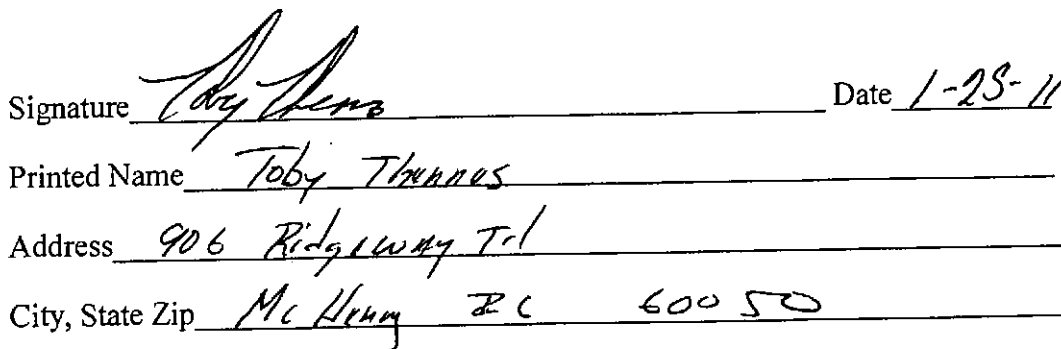 Signature Toby Date 1-25-11
Printed Name Toby Thennes
Address 906 Ridgeway Trl
City, State Zip McHenry IL 60050